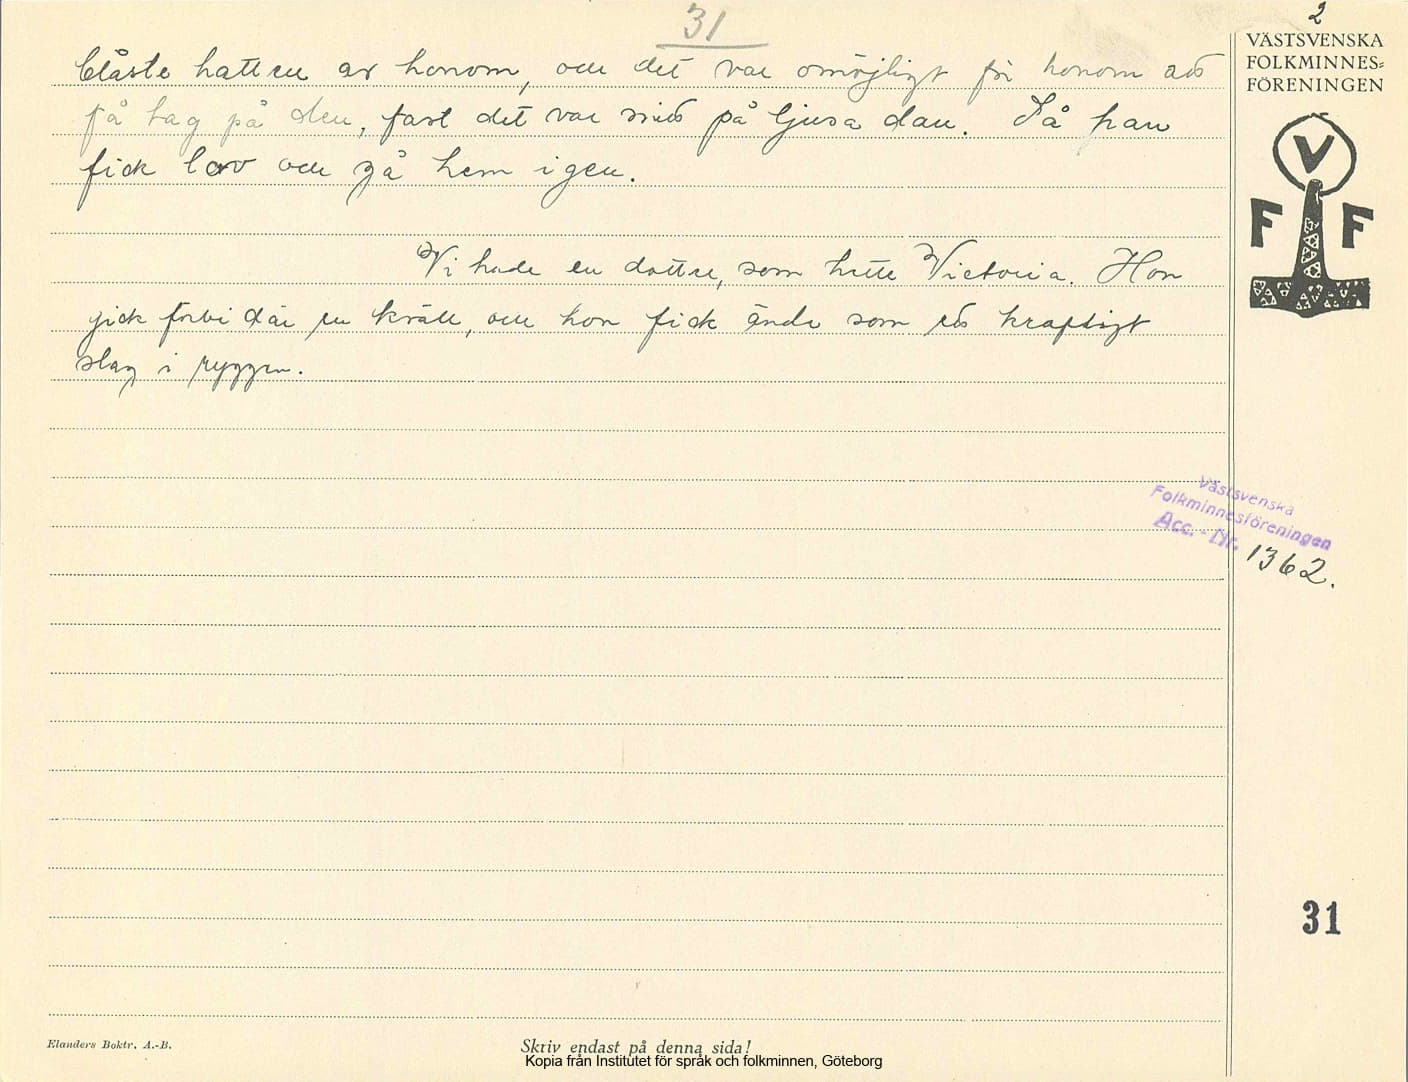 31
2
VÄSTSVENSKA
FOLKMINNES=
FÖRENINGEN
V
F F
blåste hatten av honom, och det var omöjligt för honom att
få tag på den, fast det var mitt på ljusa dan. Så han
fick lov och gå hem igen.
Vi hade en dotter, som hette Victoria. Hon
gick förbi där en kväll, och hon fick ände som ett kraftigt
slag i ryggen.
Västsvenska
Folkminnesföreningen
Acc. - Nr. 1362.
31
Elanders Boktr. A.-B.
Skriv endast på denna sida!
Kopia från Institutet för språk och folkminnen, Göteborg